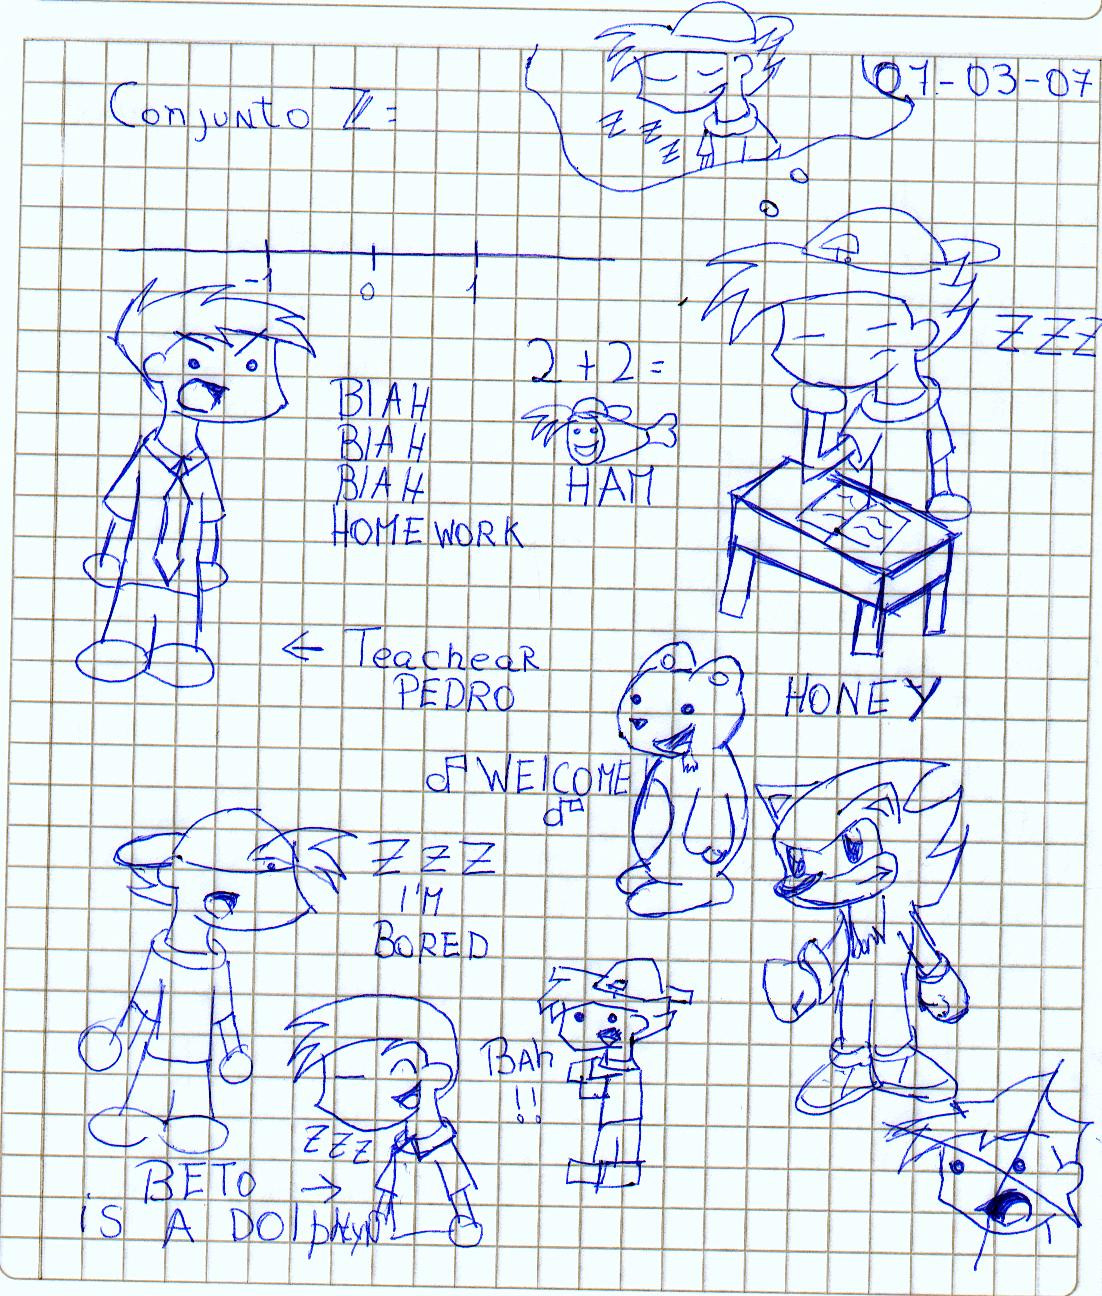 Conjunto Z=
07-03-07
z z z
-1 0 1
ZZZ
2 + 2 =
HAM
BlAH
BlAH
BlAH
HOMEWORK
← TeacheaR
PEDRO
HONEY
WElCOME!
Z z Z
I'M
BORED
BAh
!!
zzz
BETO →
iS A DOlphyn